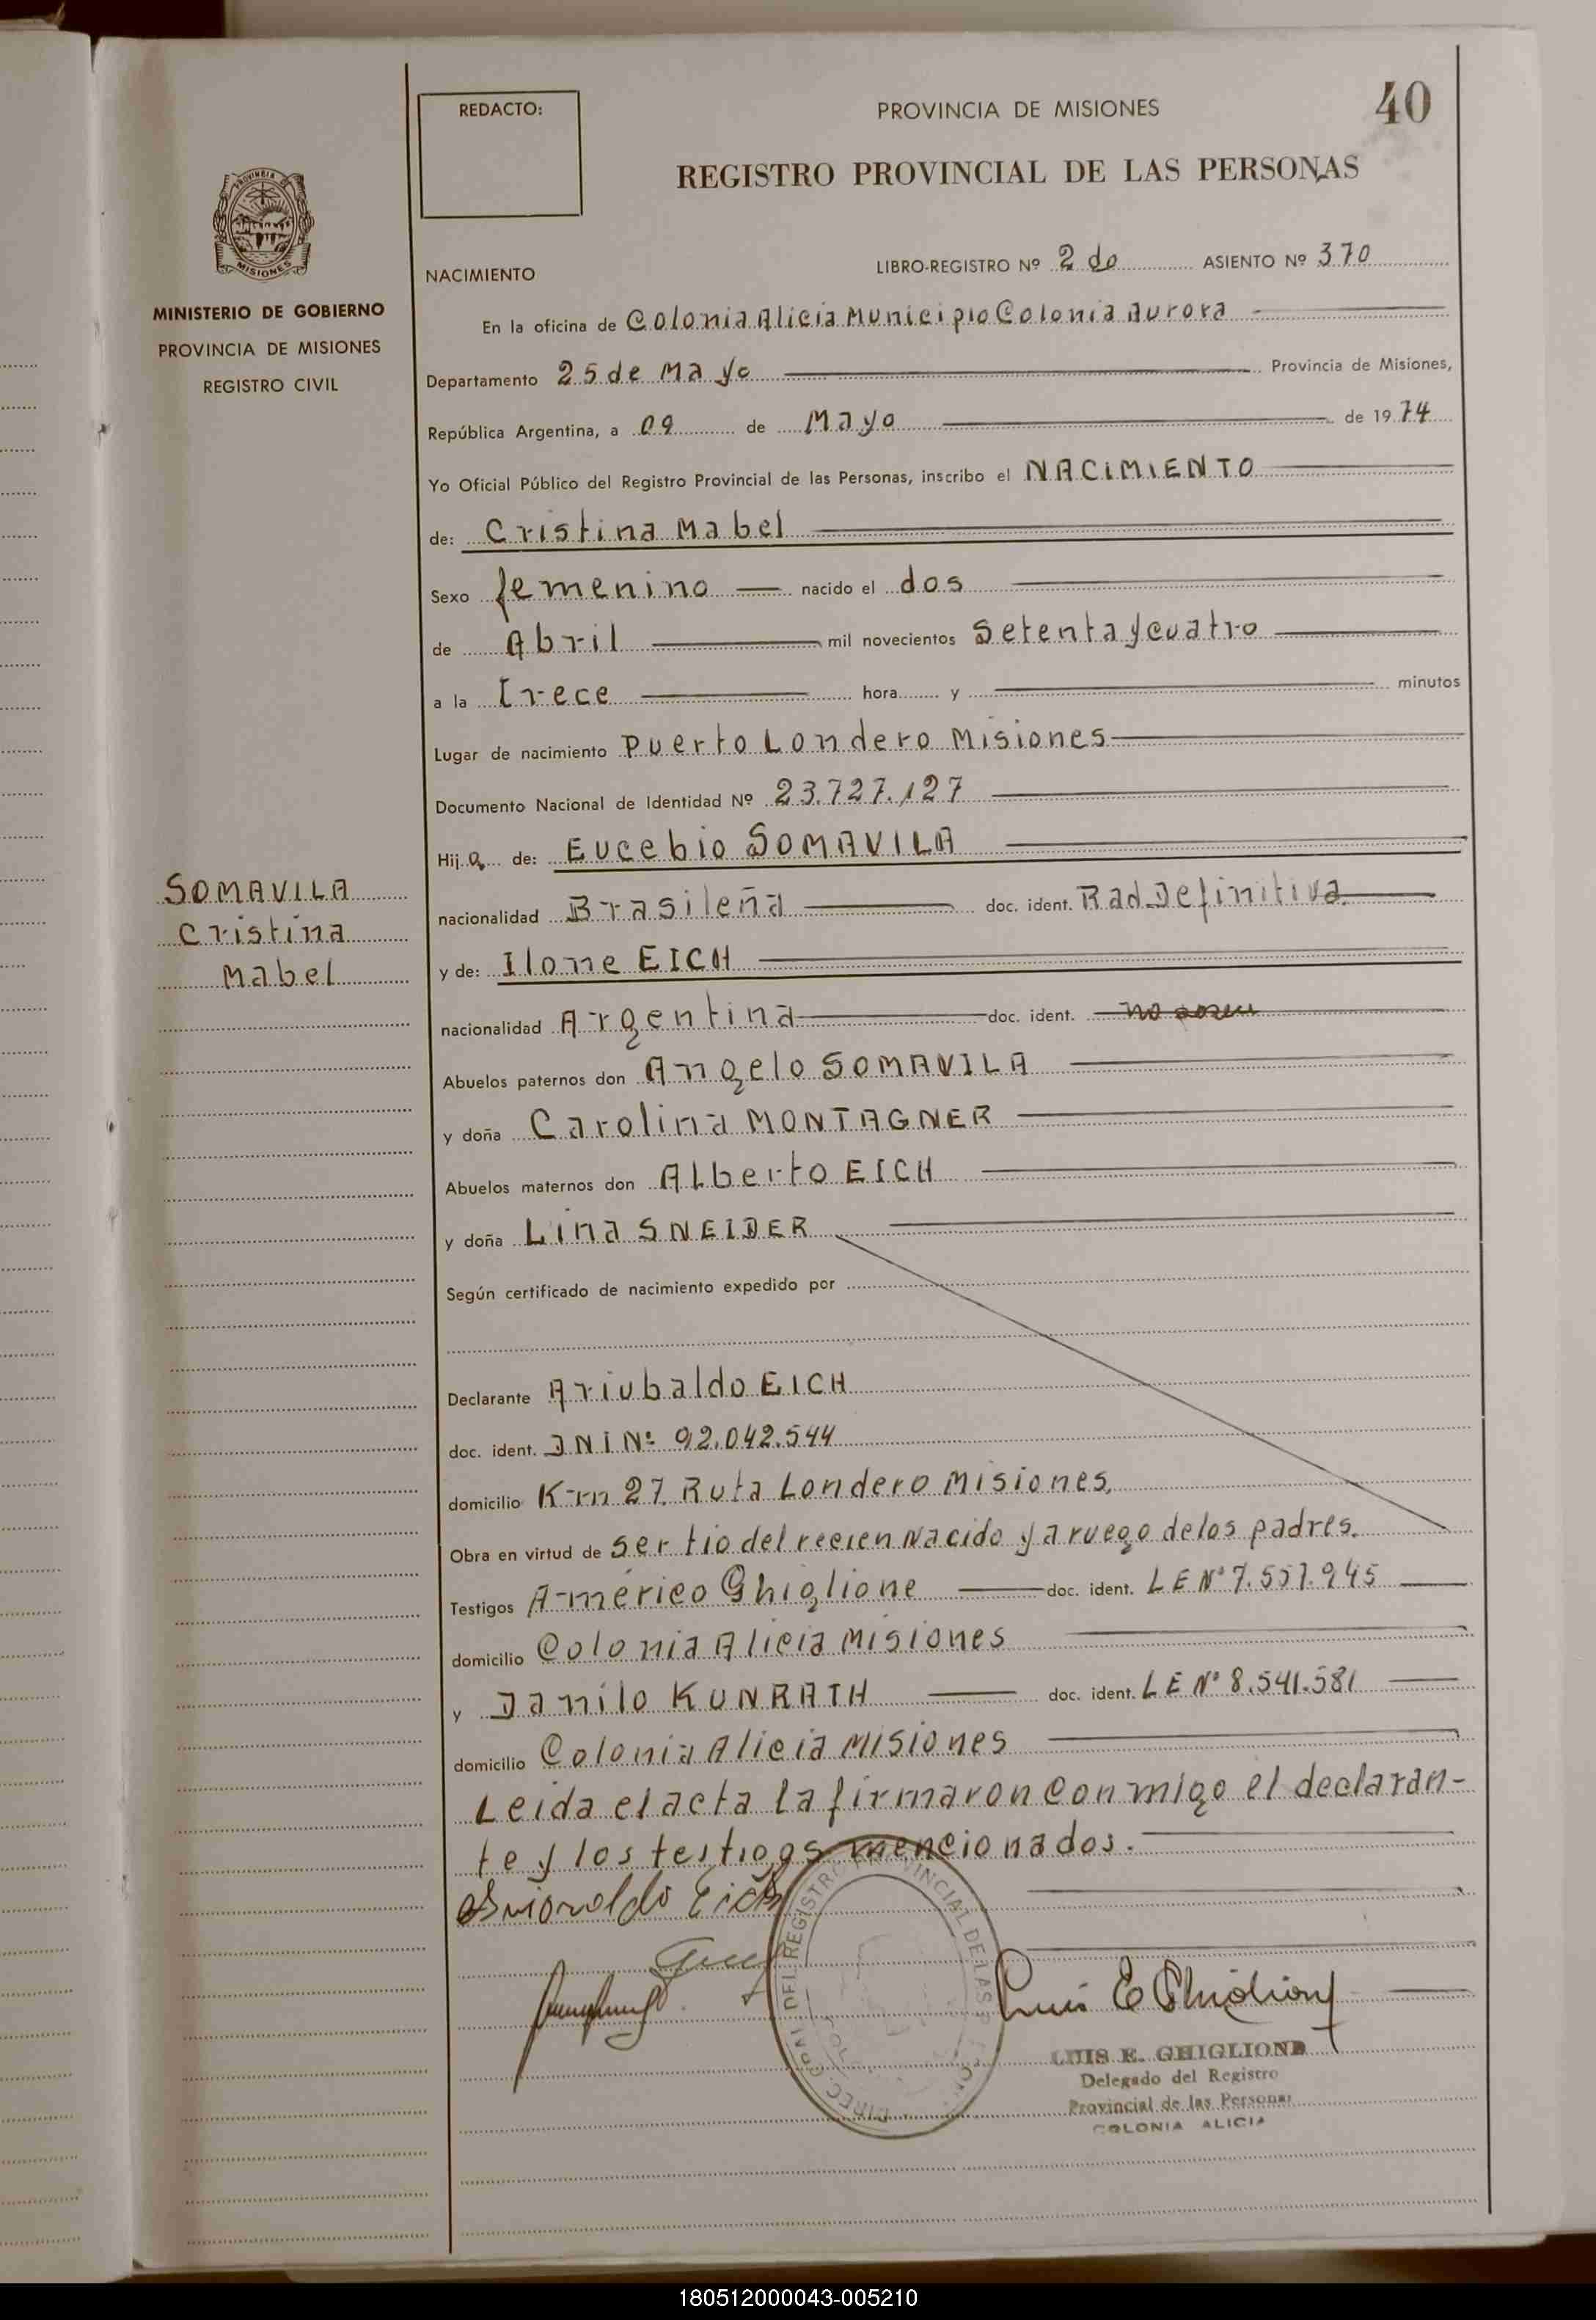 REDACTO:
PROVINCIA DE MISIONES
40
REGISTRO PROVINCIAL DE LAS PERSONAS
PROVINCIA DE
MISIONES
MINISTERIO DE GOBIERNO
PROVINCIA DE MISIONES
REGISTRO CIVIL
NACIMIENTO
LIBRO-REGISTRO Nº 2do ASIENTO Nº 370
En la oficina de Colonia Alicia Municipio Colonia Aurora
Departamento 25 de Mayo Provincia de Misiones,
República Argentina, a 09 de Mayo de 1974
Yo Oficial Público del Registro Provincial de las Personas, inscribo el NACIMIENTO
de: Cristina Mabel
Sexo femenino nacido el dos
de Abril mil novecientos Setenta y cuatro
a la trece hora y minutos
Lugar de nacimiento Puerto Londero Misiones
Documento Nacional de Identidad Nº 23.727.127
Hija de: Eucebio SOMAVILA
SOMAVILA
Cristina
Mabel
nacionalidad Brasileña doc. ident. Rad Definitiva
y de: Ilone EICH
nacionalidad Argentina doc. ident. no
Abuelos paternos don Angelo SOMAVILA
y doña Carolina MONTAGNER
Abuelos maternos don Alberto EICH
y doña Lina SNEIDER
Según certificado de nacimiento expedido por
Declarante Ariubaldo EICH
doc. ident. DNI Nº 92.042.544
domicilio Km 27 Ruta Londero Misiones,
Obra en virtud de ser tio del recien Nacido y a ruego de los padres.
Testigos Américo Ghiglione doc. ident. LE Nº 7.557.945
domicilio Colonia Alicia Misiones
y Danilo KUNRATH doc. ident. LE Nº 8.541.581
domicilio Colonia Alicia Misiones
Leida el acta la firmaron conmigo el declaran-
te y los testigos mencionados.
Eich
Luis E Ghiglione
DIREC GRAL DEL REGISTRO PROVINCIAL DE LAS
LUIS E. GHIGLIONE
Delegado del Registro
Provincial de las Personas
COLONIA ALICIA
180512000043-005210